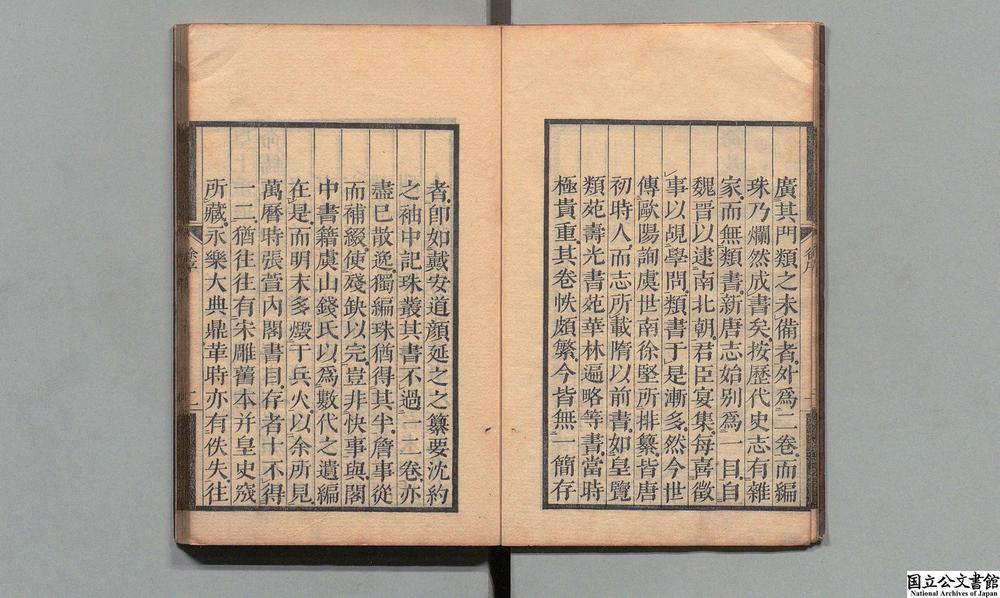 廣其門類之未備者。外爲二卷。而編
珠乃爛然成書矣。按歷代史志有雜
家。而無類書。新唐志始別爲一目。自
魏晉以逮南北朝君臣宴集。每喜徵
事以覘學問。類書于是漸多。然今世
傳歐陽詢虞世南徐堅所排纂。皆唐
初時人。而志所載隋以前書。如皇覽
類苑壽光書苑華林遍略等書。當時
極貴重。其卷帙頗繁。今皆無一簡存
者。卽如戴安道顏延之之纂要沈約
之袖中記珠叢其書不過一二卷。亦
盡已散逸。獨編珠猶得其半。詹事從
而補綴。使殘缺以完。豈非快事與。閣
中書籍虞山錢氏以爲數代之遺編
在是。而明末多燬于兵火。以余所見
萬曆時張萱內閣書目。存者十不得
一二。猶往往有宋雕舊本并皇史宬
所藏。永樂大典鼎革時亦有佚失。往
二
国立公文書館
National Archives of Japan